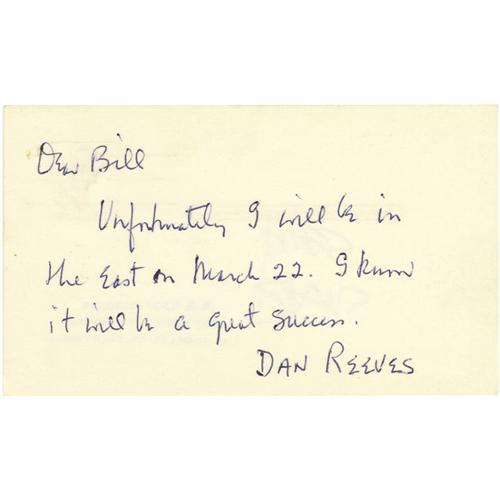 Dear Bill
Unfortunately I will be in
the East on March 22. I know
it will be a great success.
DAN REEVES